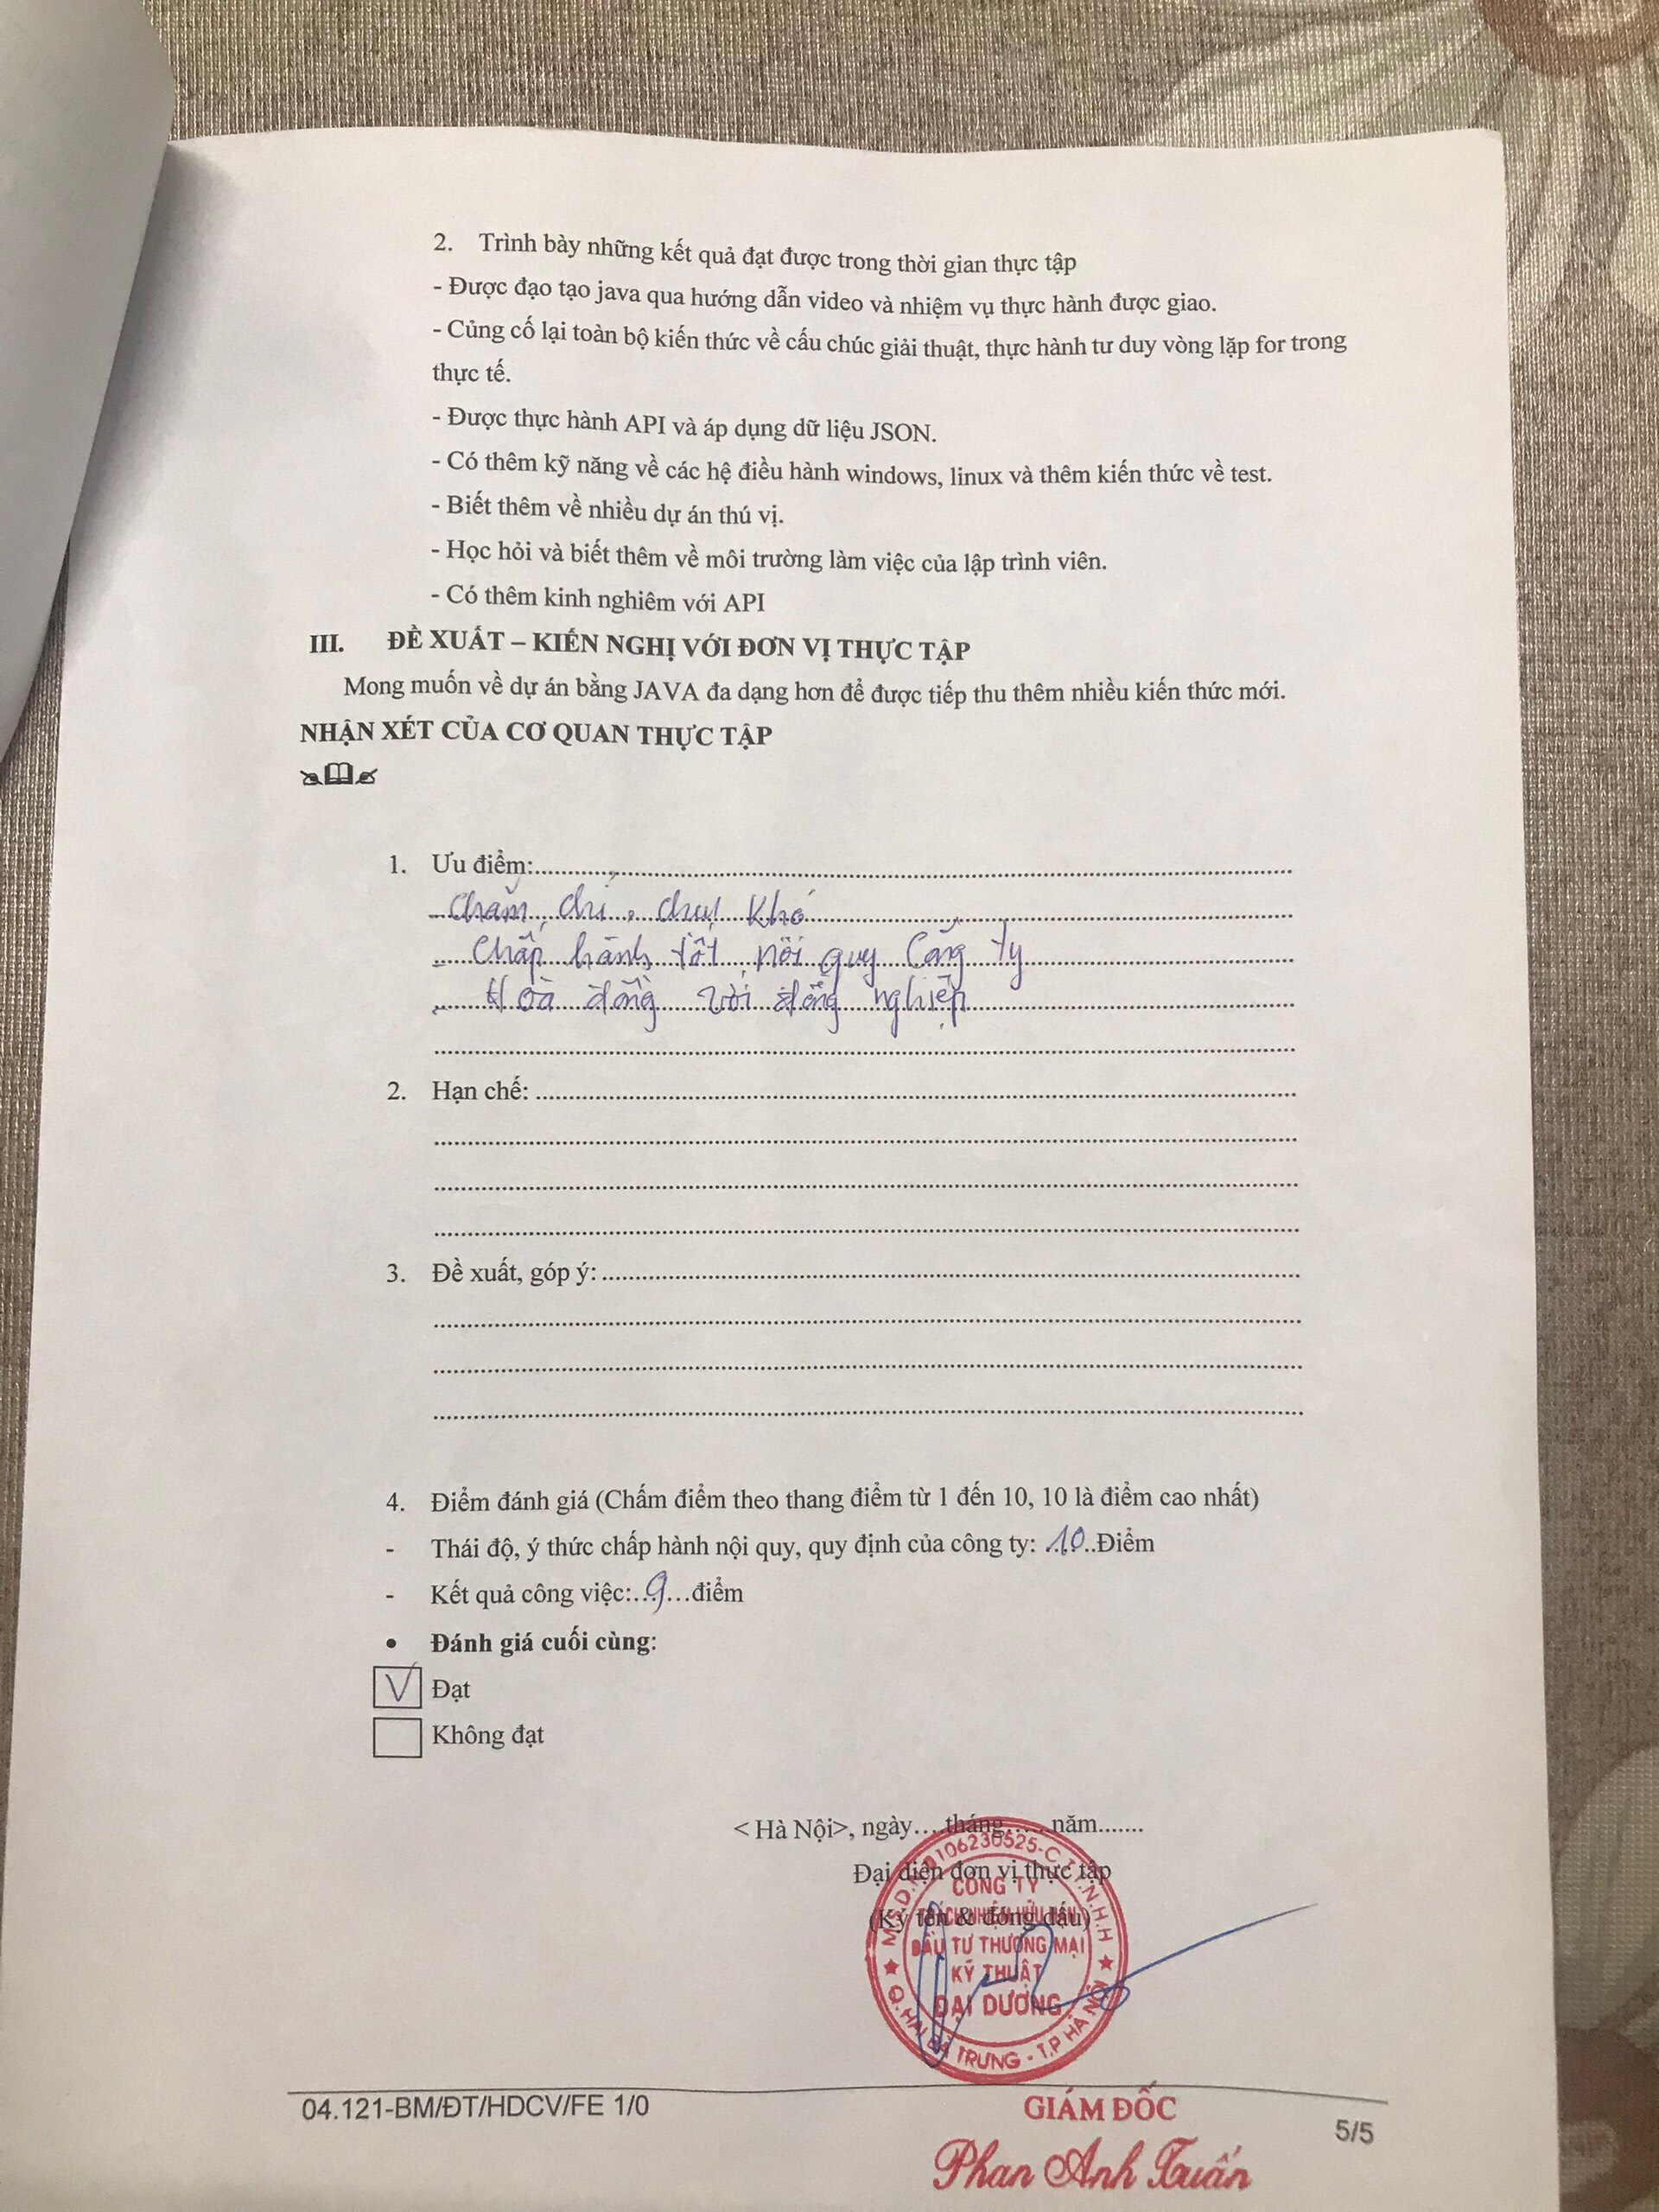 2. Trình bày những kết quả đạt được trong thời gian thực tập
- Được đạo tạo java qua hướng dẫn video và nhiệm vụ thực hành được giao.
- Củng cố lại toàn bộ kiến thức về cấu chúc giải thuật, thực hành tư duy vòng lặp for trong
thực tế.
- Được thực hành API và áp dụng dữ liệu JSON.
- Có thêm kỹ năng về các hệ điều hành windows, linux và thêm kiến thức về test.
- Biết thêm về nhiều dự án thú vị.
- Học hỏi và biết thêm về môi trường làm việc của lập trình viên.
- Có thêm kinh nghiêm với API
III. ĐỀ XUẤT – KIẾN NGHỊ VỚI ĐƠN VỊ THỰC TẬP
Mong muốn về dự án bằng JAVA đa dạng hơn để được tiếp thu thêm nhiều kiến thức mới.
NHẬN XÉT CỦA CƠ QUAN THỰC TẬP
1. Ưu điểm:
- Chăm chỉ, chịu khó
- Chấp hành tốt nội quy Công ty
- Hoà đồng với đồng nghiệp
2. Hạn chế:
3. Đề xuất, góp ý:
4. Điểm đánh giá (Chấm điểm theo thang điểm từ 1 đến 10, 10 là điểm cao nhất)
- Thái độ, ý thức chấp hành nội quy, quy định của công ty: .10..Điểm
- Kết quả công việc:..9...điểm
• Đánh giá cuối cùng:
V Đạt
Không đạt
< Hà Nội>, ngày....tháng......năm.......
Đại diện đơn vị thực tập
(Ký tên & đóng dấu)
M.S.D.N: 0106230525-C.T.T.N.H.H
CÔNG TY
TRÁCH NHIỆM HỮU HẠN
ĐẦU TƯ THƯƠNG MẠI
KỸ THUẬT
ĐẠI DƯƠNG
Q. HAI BÀ TRƯNG - T.P HÀ NỘI
04.121-BM/ĐT/HDCV/FE 1/0
GIÁM ĐỐC
5/5
Phan Anh Tuấn